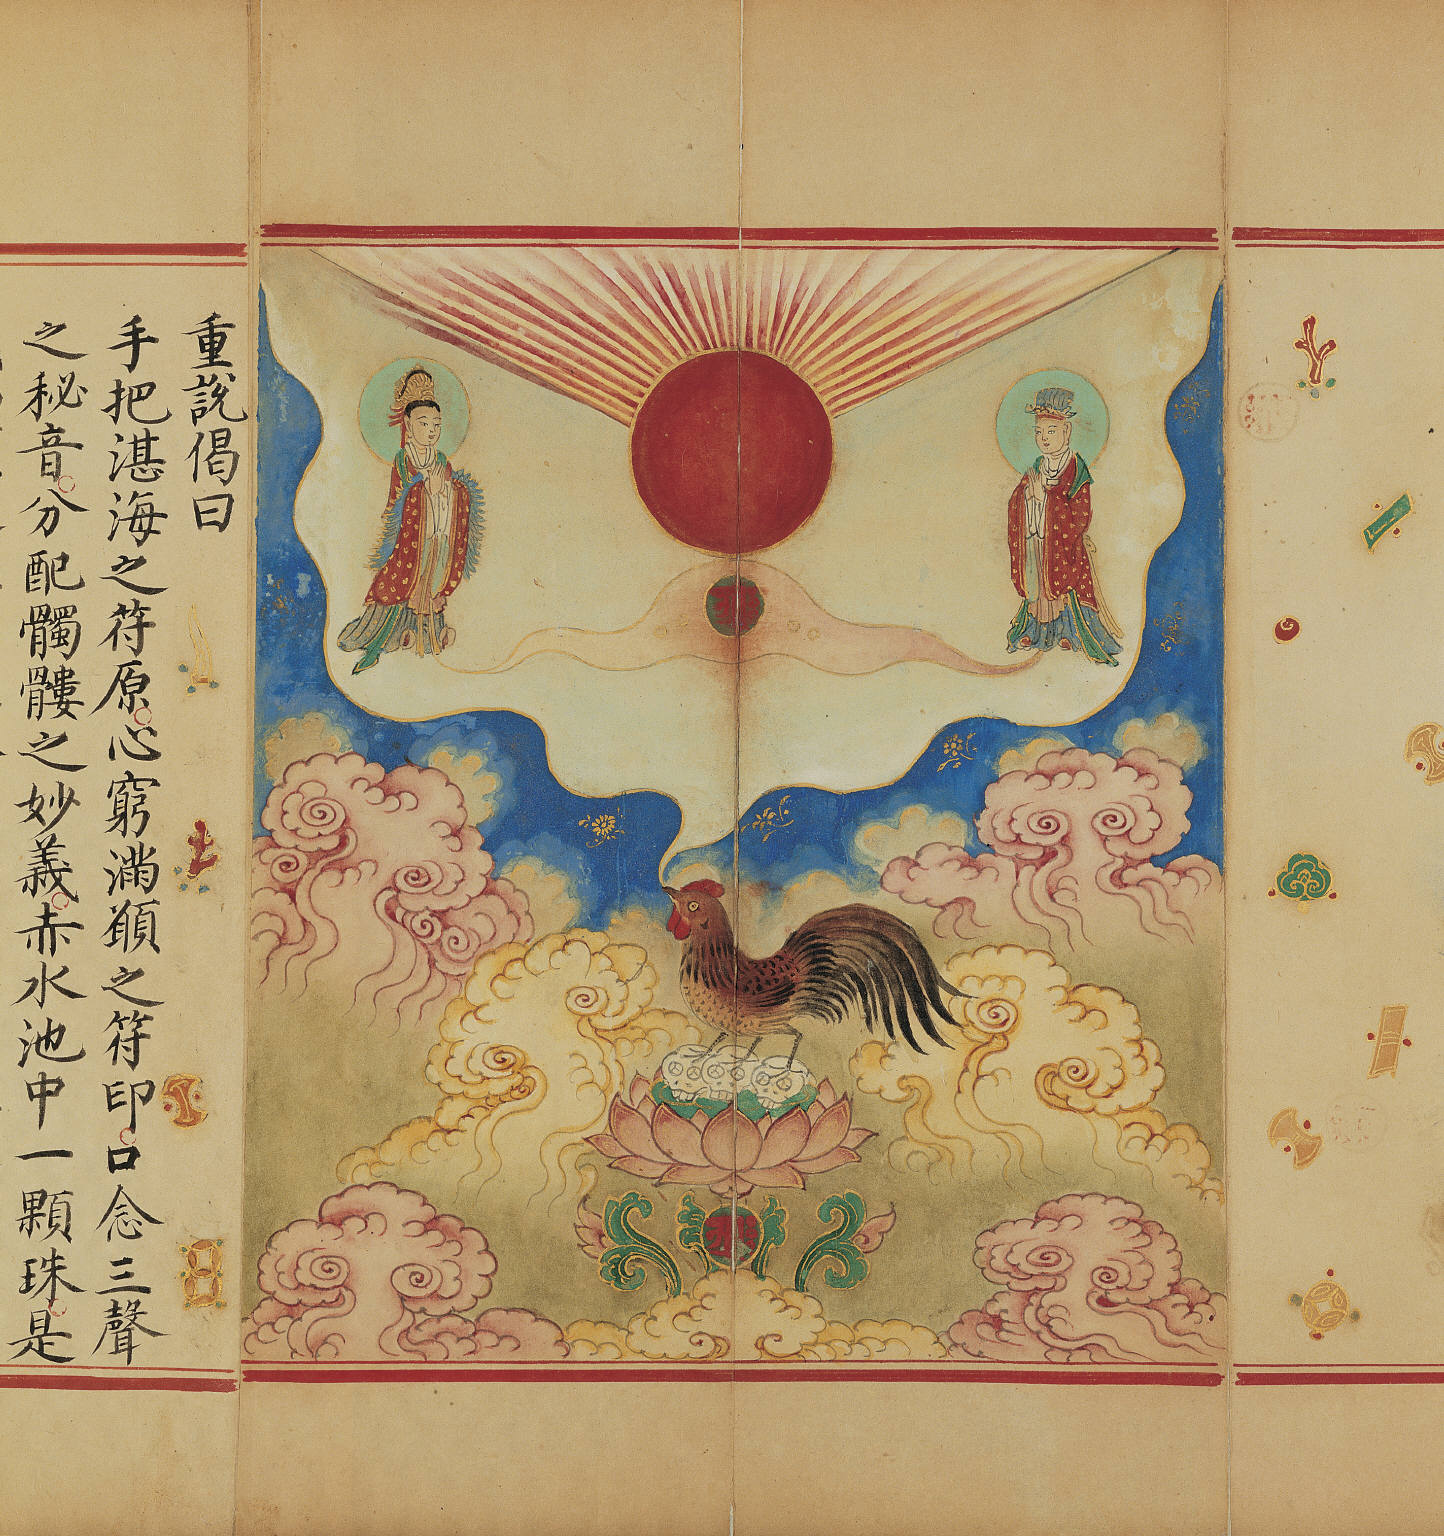 重說偈曰
手把湛海之符原心窮滿顖之符印口念三聲
之秘音分配髑髏之妙義赤水池中一顆珠是